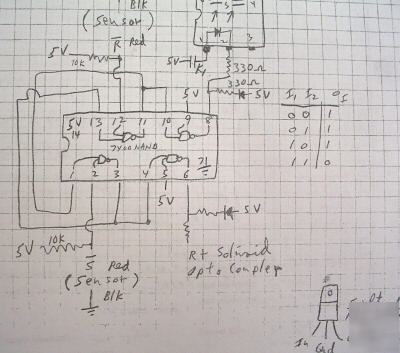 Blk
(Sensor)
3 4
R Red
5V
10K
5V
K1
1 2 3
330Ω
330Ω
5V
5V
I1 I2 OI
0 0 1
0 1 1
1 0 1
1 1 0
5V 13 12 11 10 9 8
14
7400 NAND
1 2 3 4 5 6
5V
5V
5V
10K
S Red
(Sensor)
Blk
Rt Solinoid
Opto Coupler
In
Gnd